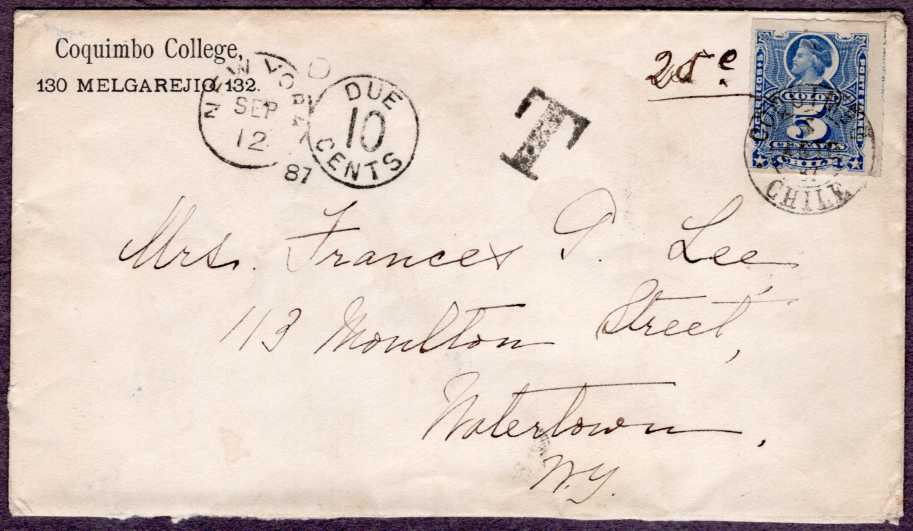 Coquimbo College,
130 MELGAREJO, 132.
NEW YORK
SEP
12
87
DUE
10
CENTS
T
25 c
COLON
5
CENTAVOS
CHILE
CHILE
Mrs. Frances P. Lee
113 Moulton Street,
Watertown,
N.Y.